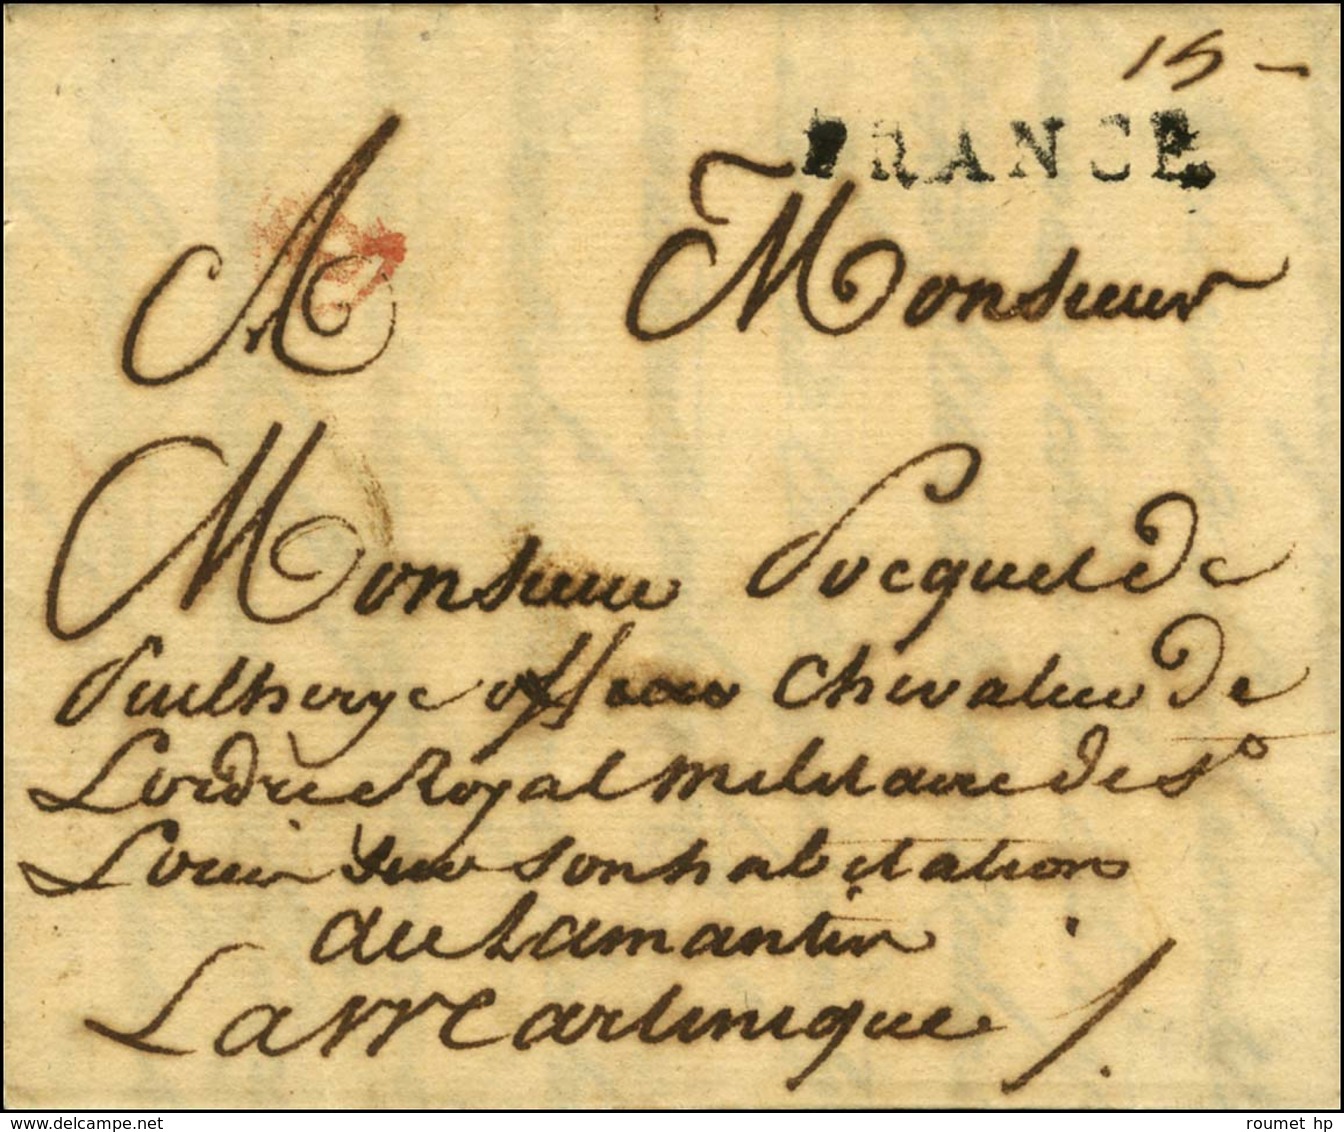 15 -
FRANCE
A Monsieur
Monsieur Pocquet de
Puilherye officier Chevalier de
L'ordre Royal militaire de St
Louis Sur Son habitation
au Lamantin
La Martinique /.
roumet hp